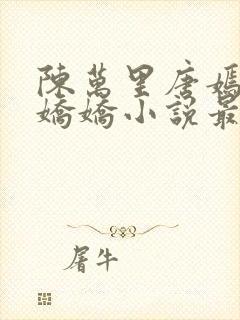 陳萬里唐嫣
嬌嬌小說最
屠牛